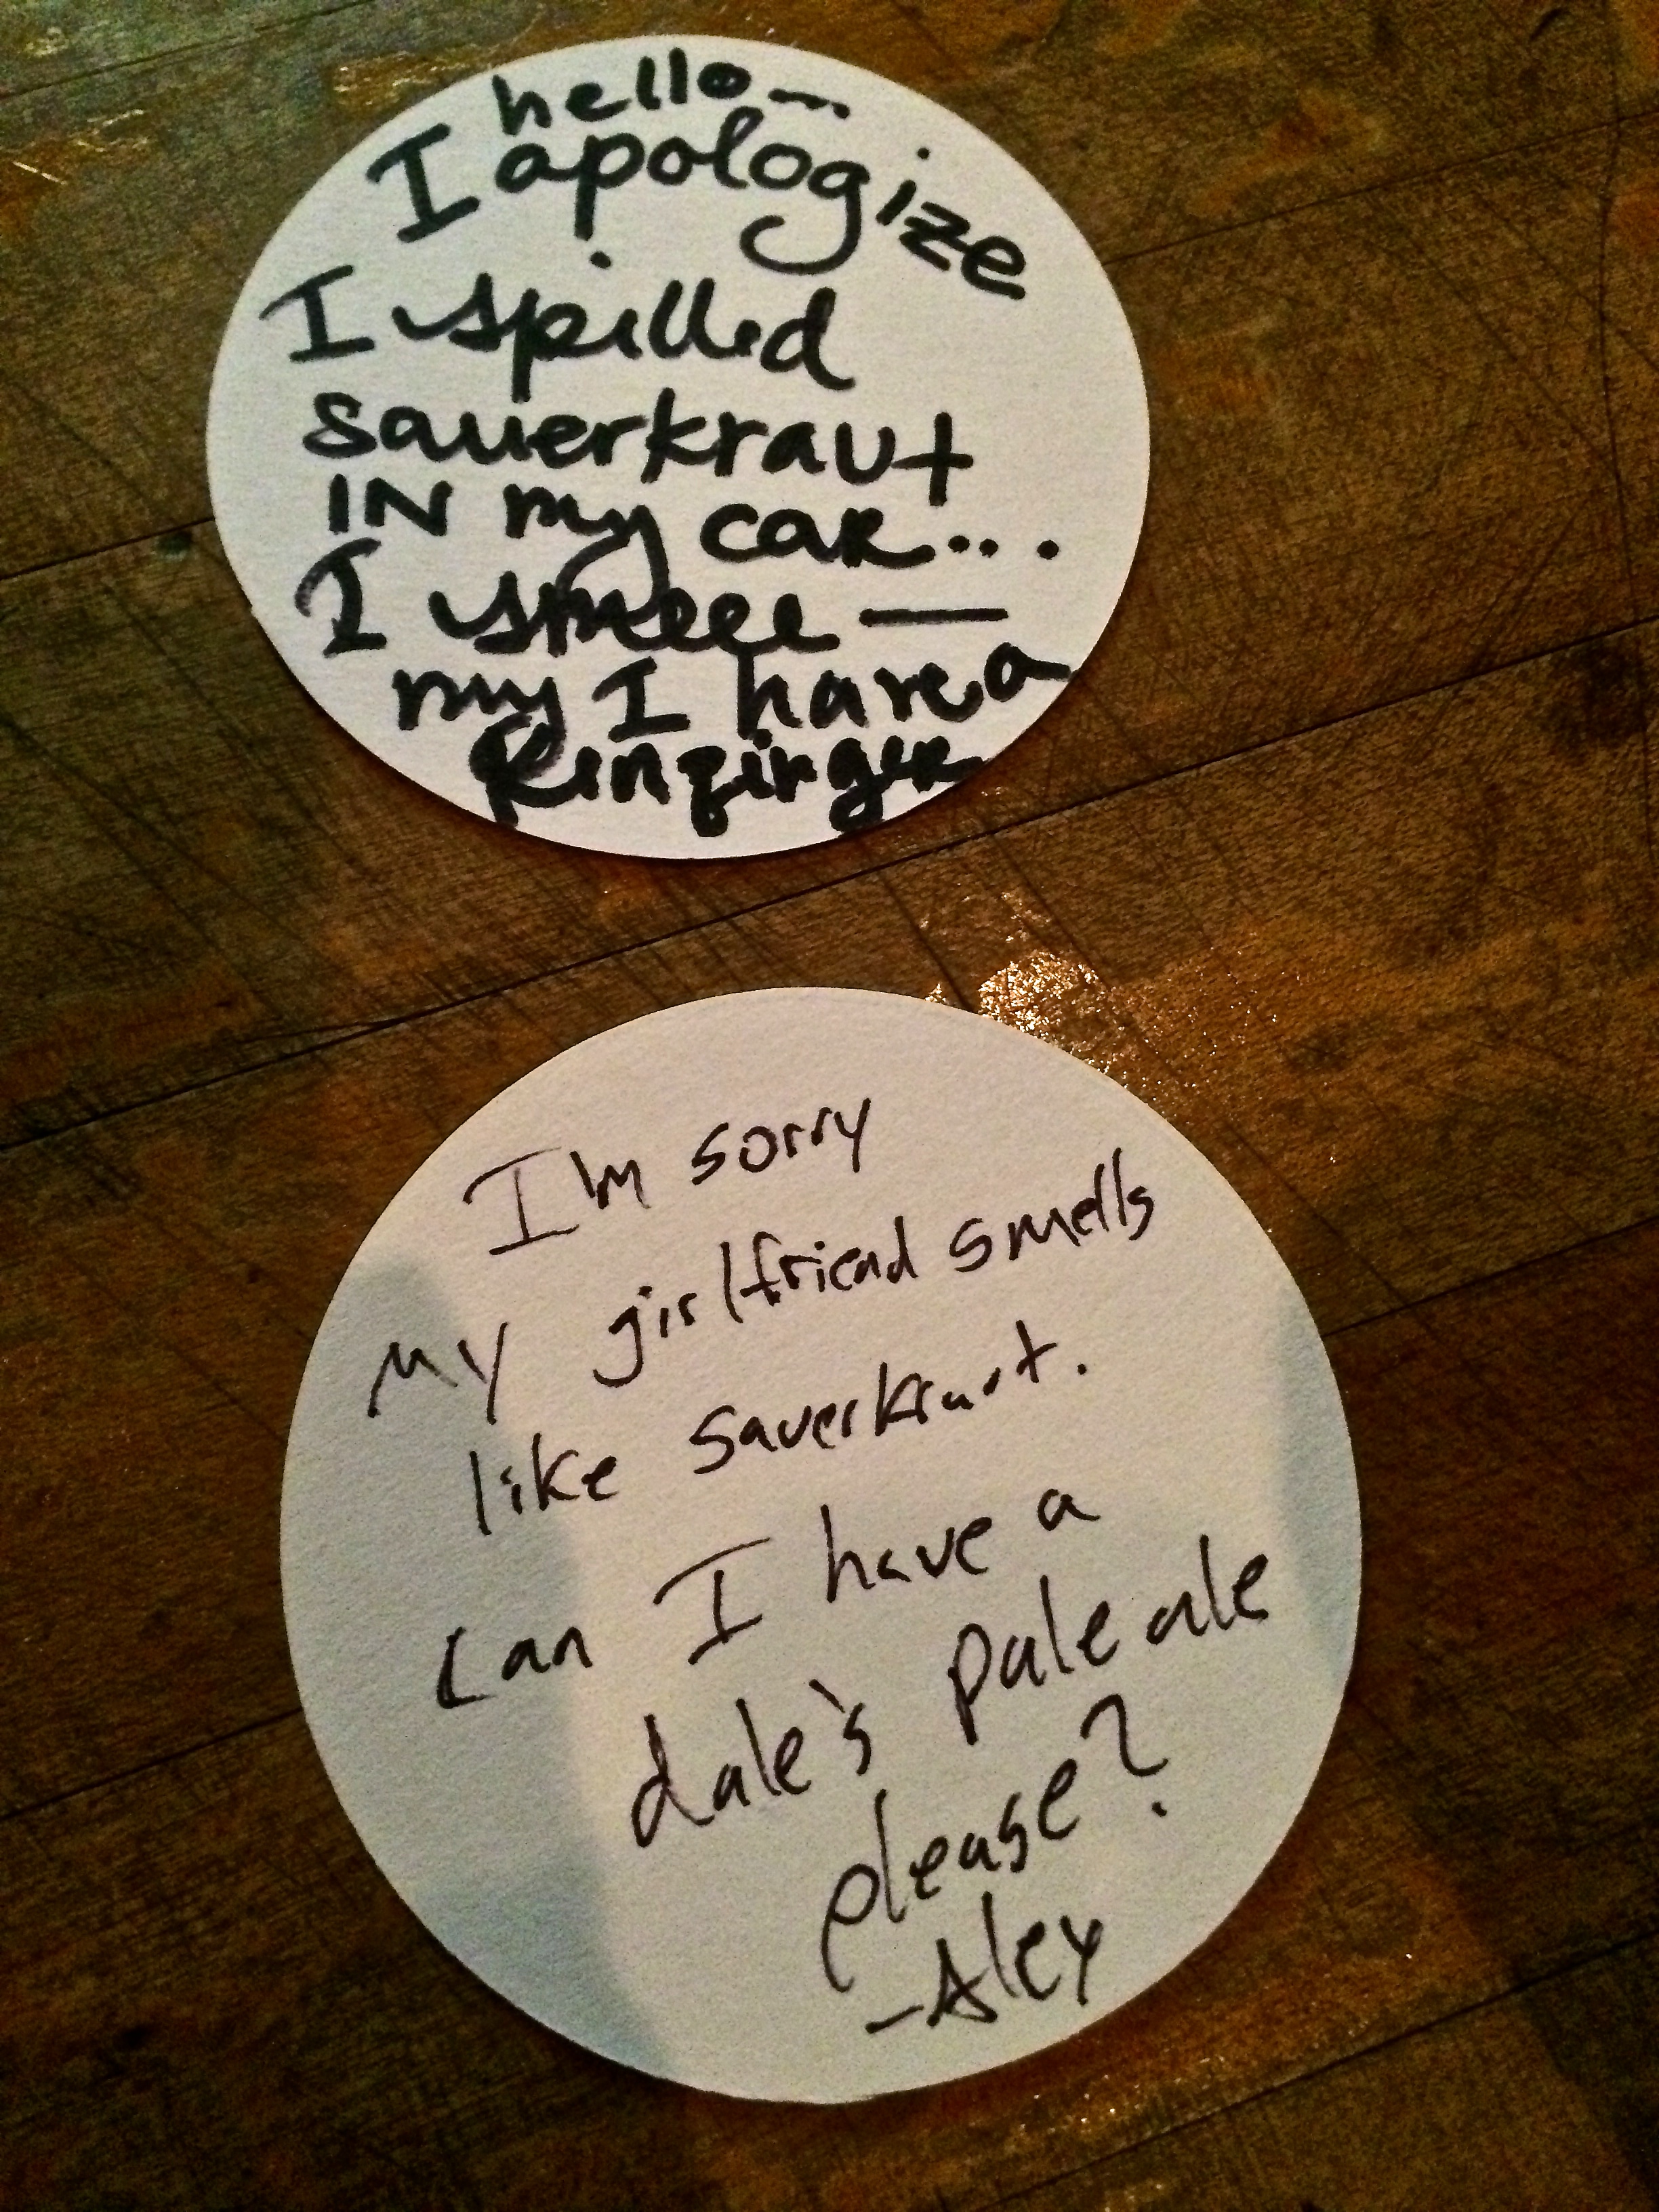 hello...
I apologize
I spilled
sauerkraut
IN my CAR...
I smell —
my I have a
I'm sorry
my girlfriend smells
like sauerkraut.
Can I have a
dale's pale ale
please?
-Alex